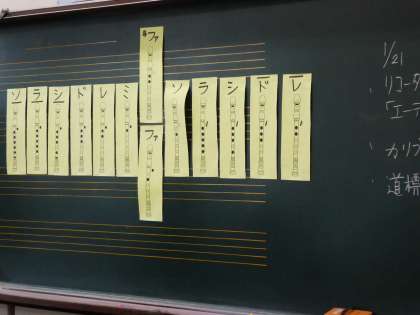 #ファ
ソ
ラ
シ
ド
レ
ミ
ファ
ソ
ラ
シ
ド
レ
1/21
リコーダ
「エーデ
カリブ
道標